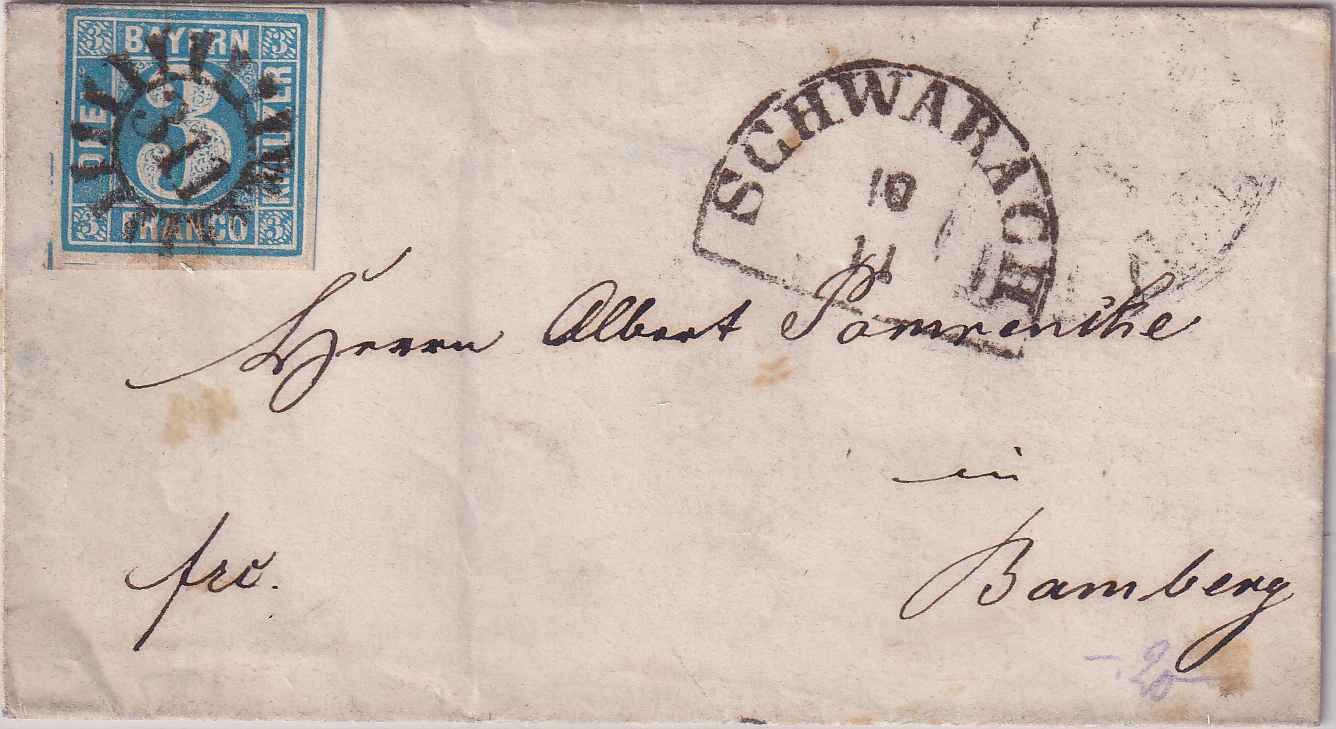 3 BAYERN 3
DREI 3 KREUZER
3 FRANCO 3
SCHWABACH
10
11
Herrn Albert Pomrenike
in
Bamberg
frc.